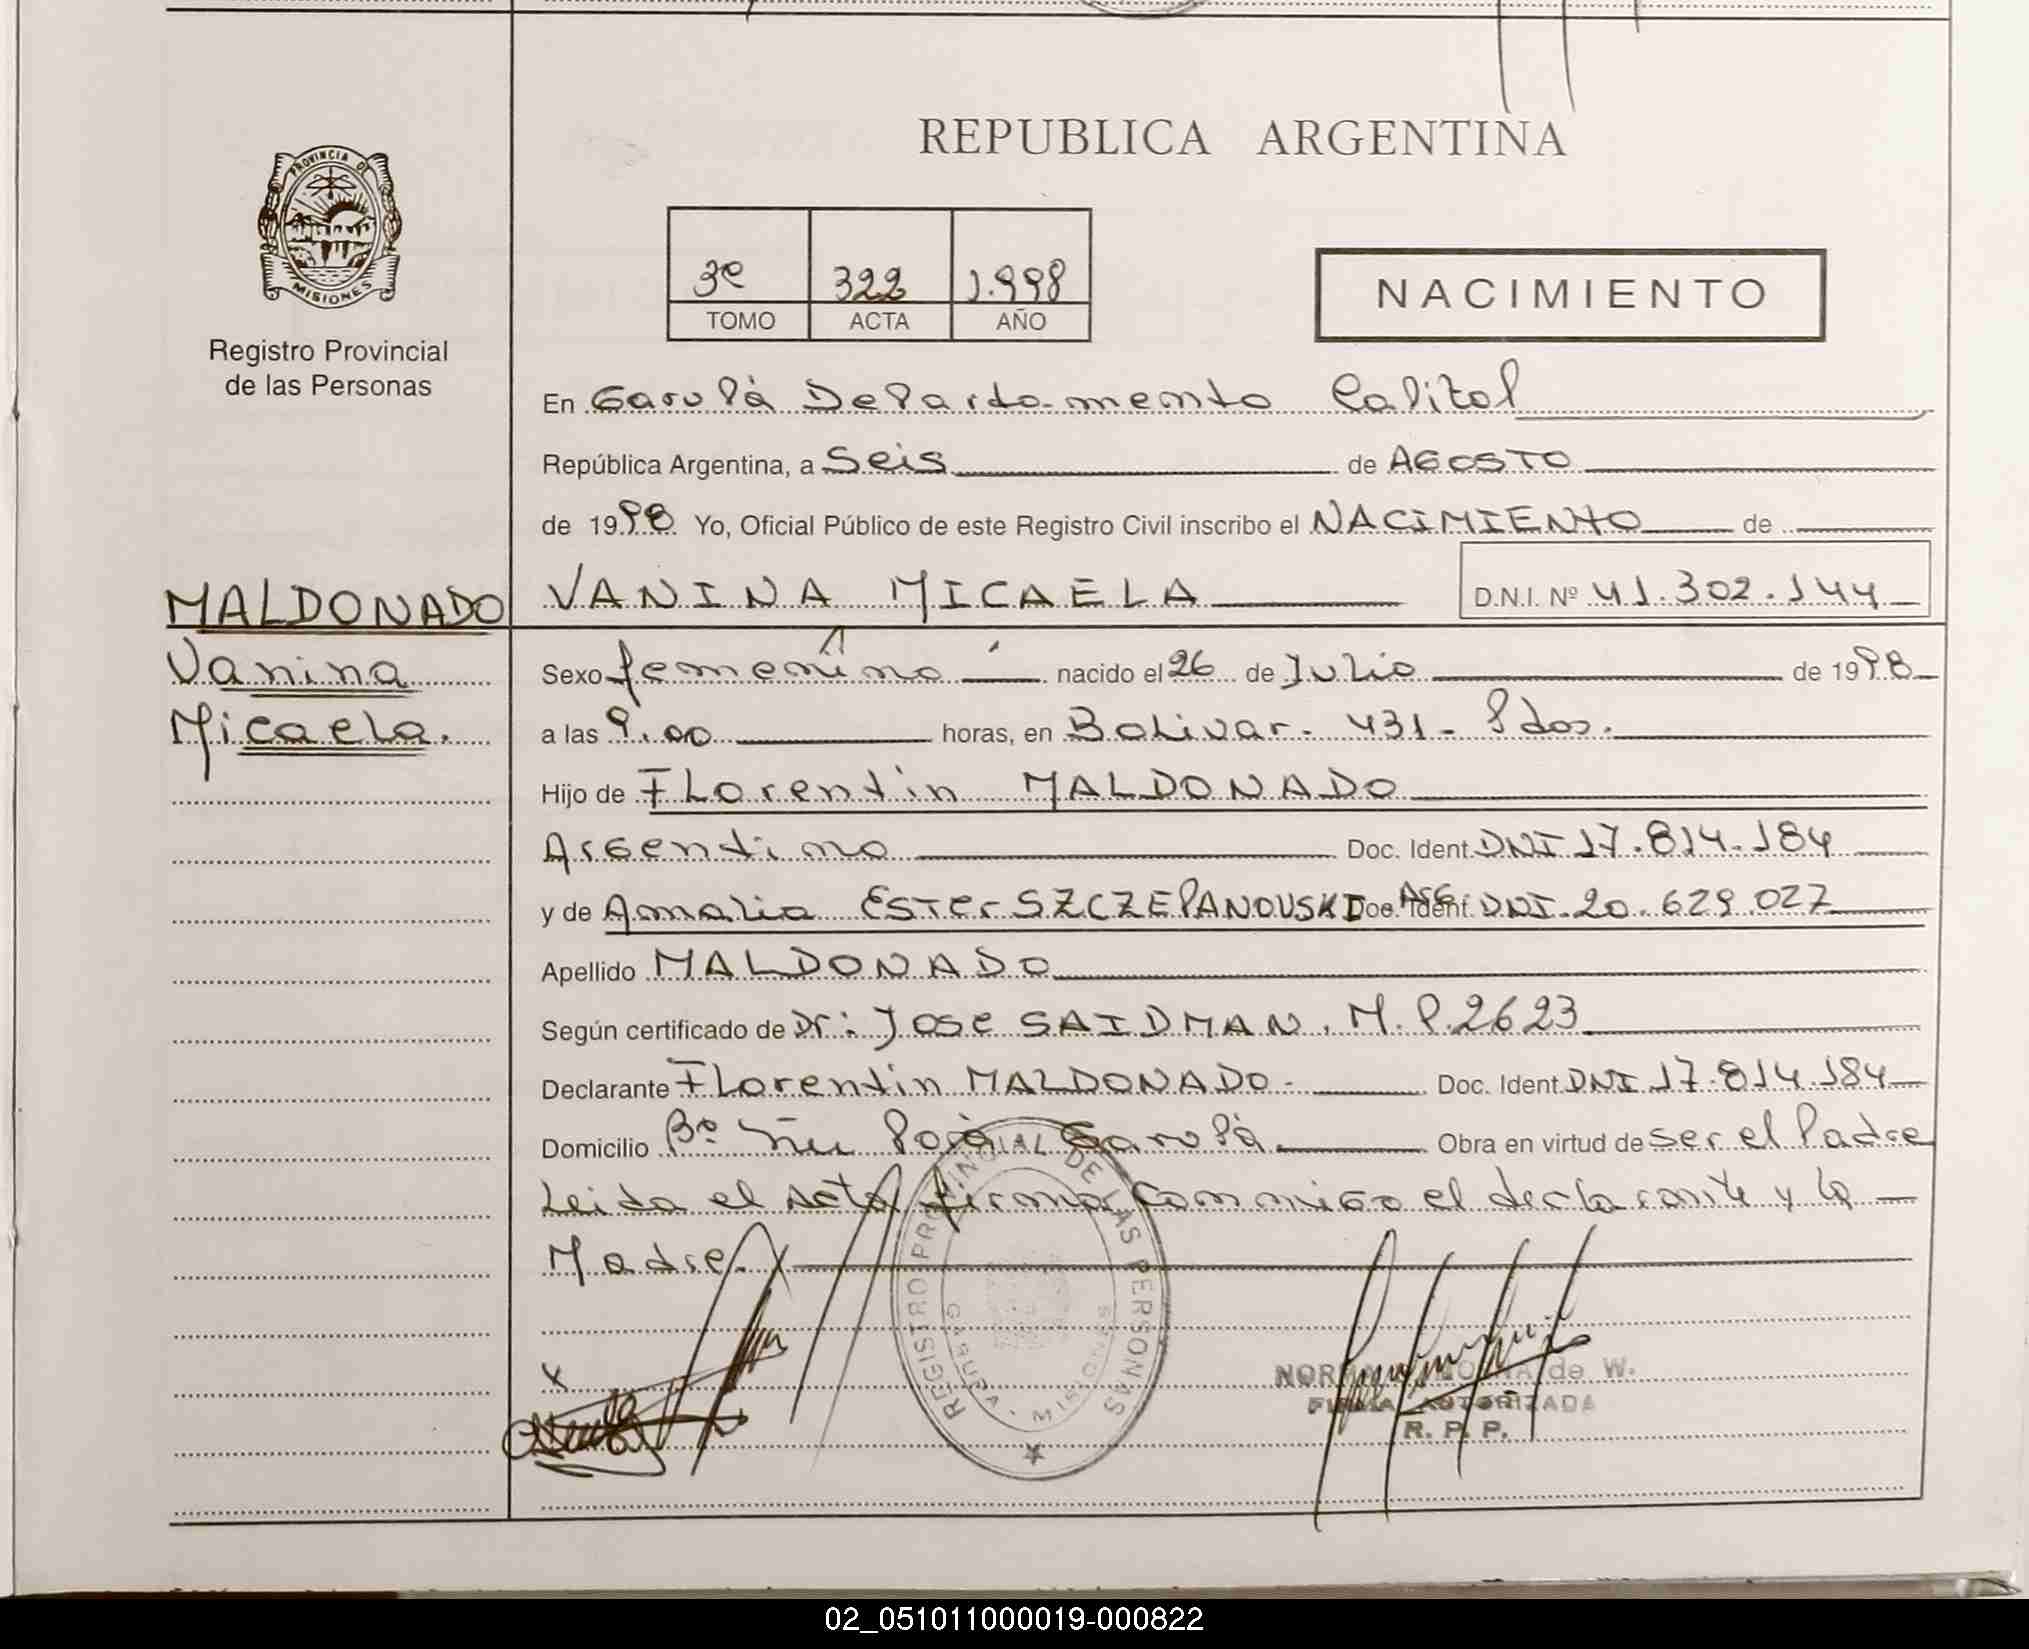 REPUBLICA ARGENTINA
PROVINCIA DE
MISIONES
Registro Provincial
de las Personas
3º 322 1.998
TOMO ACTA AÑO
NACIMIENTO
En Garupá Departamento Capital
República Argentina, a Seis de AGOSTO
de 1998 Yo, Oficial Público de este Registro Civil inscribo el NACIMIENTO de
MALDONADO VANINA MICAELA D.N.I. Nº 41.302.144
Vanina Sexo femenino nacido el 26 de Julio de 1998
Micaela. a las 9.00 horas, en Bolivar - 431 - Pdos.
Hijo de Florentin MALDONADO
Argentino Doc. Ident. DNI 17.814.184
y de Amalia Ester SZCZEPANOUSKI Arg. Doc. Ident. DNI. 20.629.027
Apellido MALDONADO
Según certificado de Dr: Jose SAIDMAN. M.P. 2623
Declarante Florentin MALDONADO - Doc. Ident. DNI 17.814.184
Domicilio Bº Ñu Porá Garupá Obra en virtud de ser el Padre
Leida el acta firma conmigo el declarante y la
Madre.
REGISTRO PROVINCIAL DE LAS PERSONAS
MISIONES
X
NORMA de W.
FIRMA AUTORIZADA
R. P. P.
02_051011000019-000822